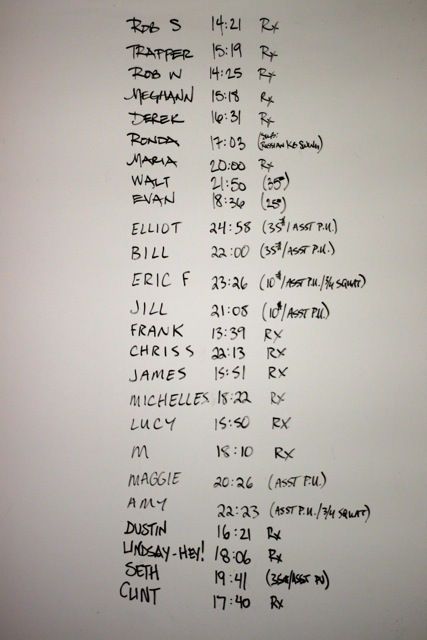 ROB S 14:21 Rx
TRAPPER 15:19 Rx
ROB W 14:25 Rx
MEGHANN 15:18 Rx
DEREK 16:31 Rx
RONDA 17:03 (RUSSIAN KB SWING)
MARIA 20:00 Rx
WALT 21:50 (35#)
EVAN 18:36 (25#)
ELLIOT 24:58 (35#/ASST P.U.)
BILL 22:00 (35#/ASST P.U.)
ERIC F 23:26 (10#/ASST P.U./3/4 SQUAT)
JILL 21:08 (10#/ASST P.U.)
FRANK 13:39 RX
CHRIS S 22:13 RX
JAMES 15:51 RX
MICHELLES 18:22 RX
LUCY 15:50 RX
M 18:10 RX
MAGGIE 20:26 (ASST P.U.)
AMY 22:23 (ASST P.U./3/4 SQUAT)
DUSTIN 16:21 Rx
LINDSAY-HEY! 18:06 Rx
SETH 19:41 (35#/ASST PU)
CLINT 17:40 Rx